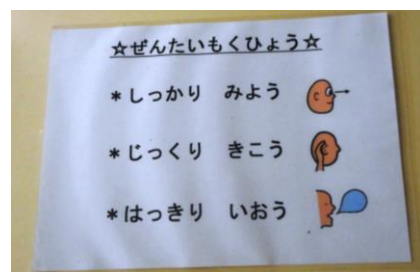 ☆ぜんたいもくひょう☆
＊しっかり　みよう
＊じっくり　きこう
＊はっきり　いおう